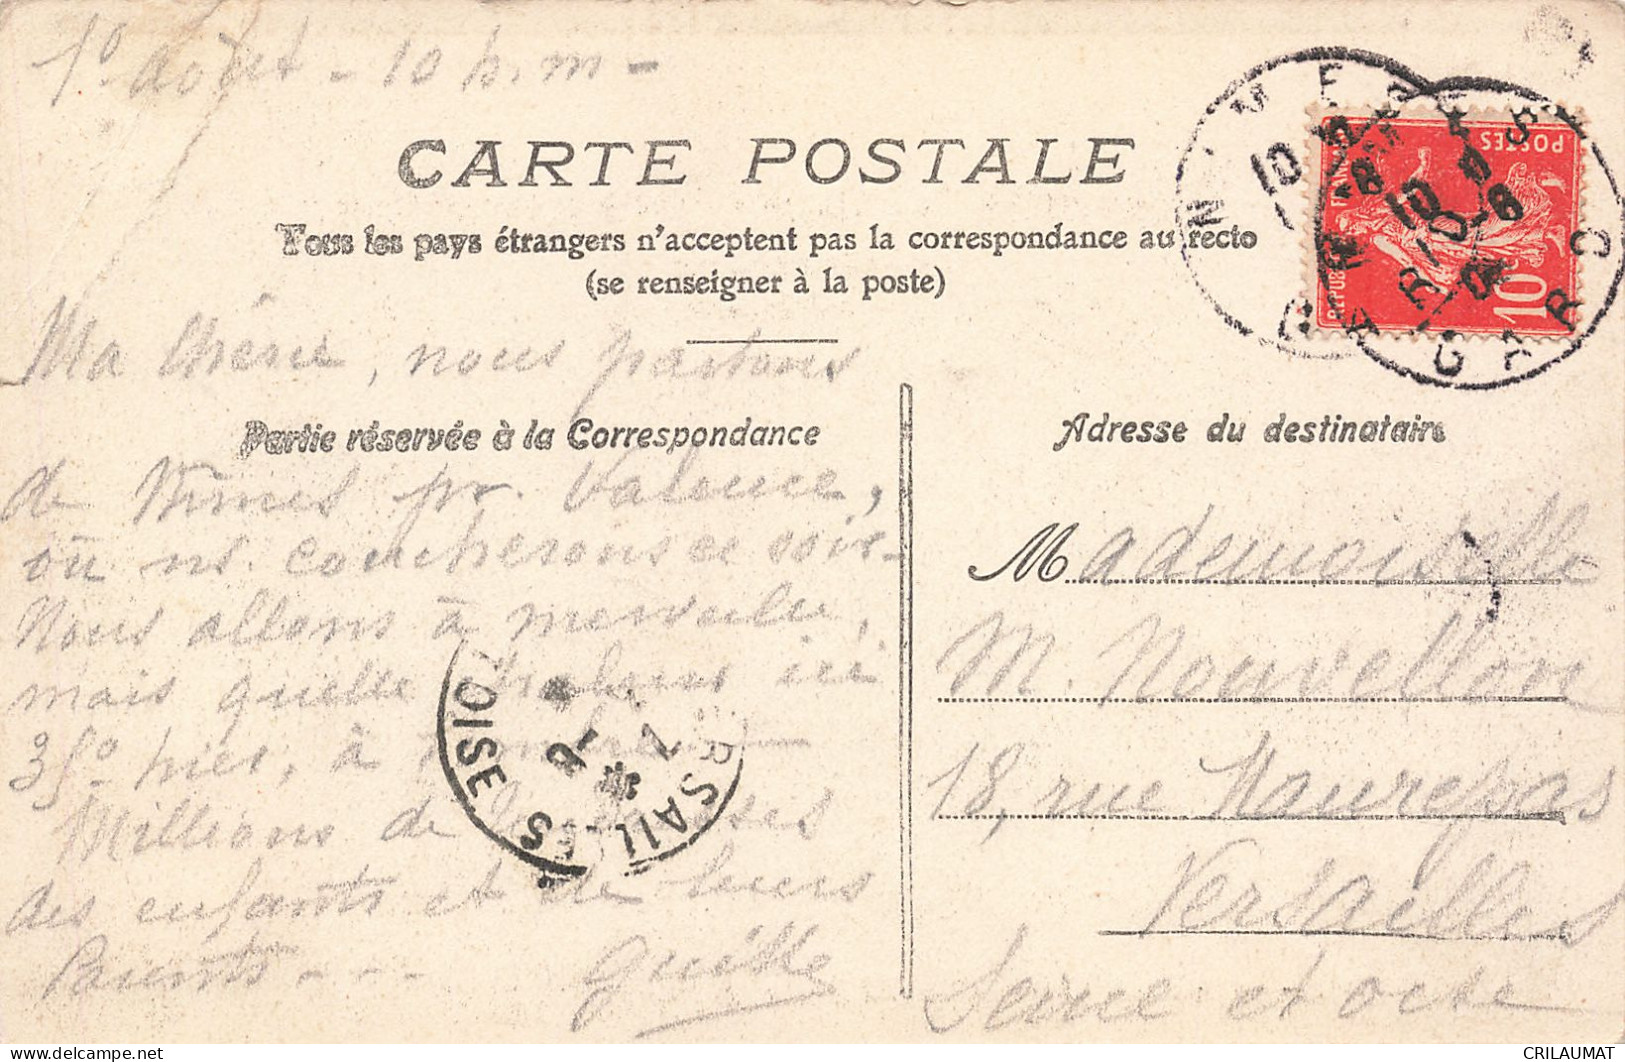 1º août - 10 h. m -
CARTE POSTALE
Tous les pays étrangers n'acceptent pas la correspondance au recto
(se renseigner à la poste)
Ma Chérie, nous partons
Partie réservée à la Correspondance
de Nîmes pr. Valence,
où ns. coucherons ce soir.
Nous allons à merveille,
mais quelle chaleur ici
35º hier, à l'ombre
Millions de
des enfants et de leurs
Parents - - -
Adresse du destinataire
Mademoiselle
M. Nouvellon
18, rue Maurepas
Versailles
Seine et Oise
NIMES
GARD
10
8
NIMES
GARD
10
8
REPUB FRANÇ
POSTES
10
VERSAILLES
S OISE
CRILAUMAT